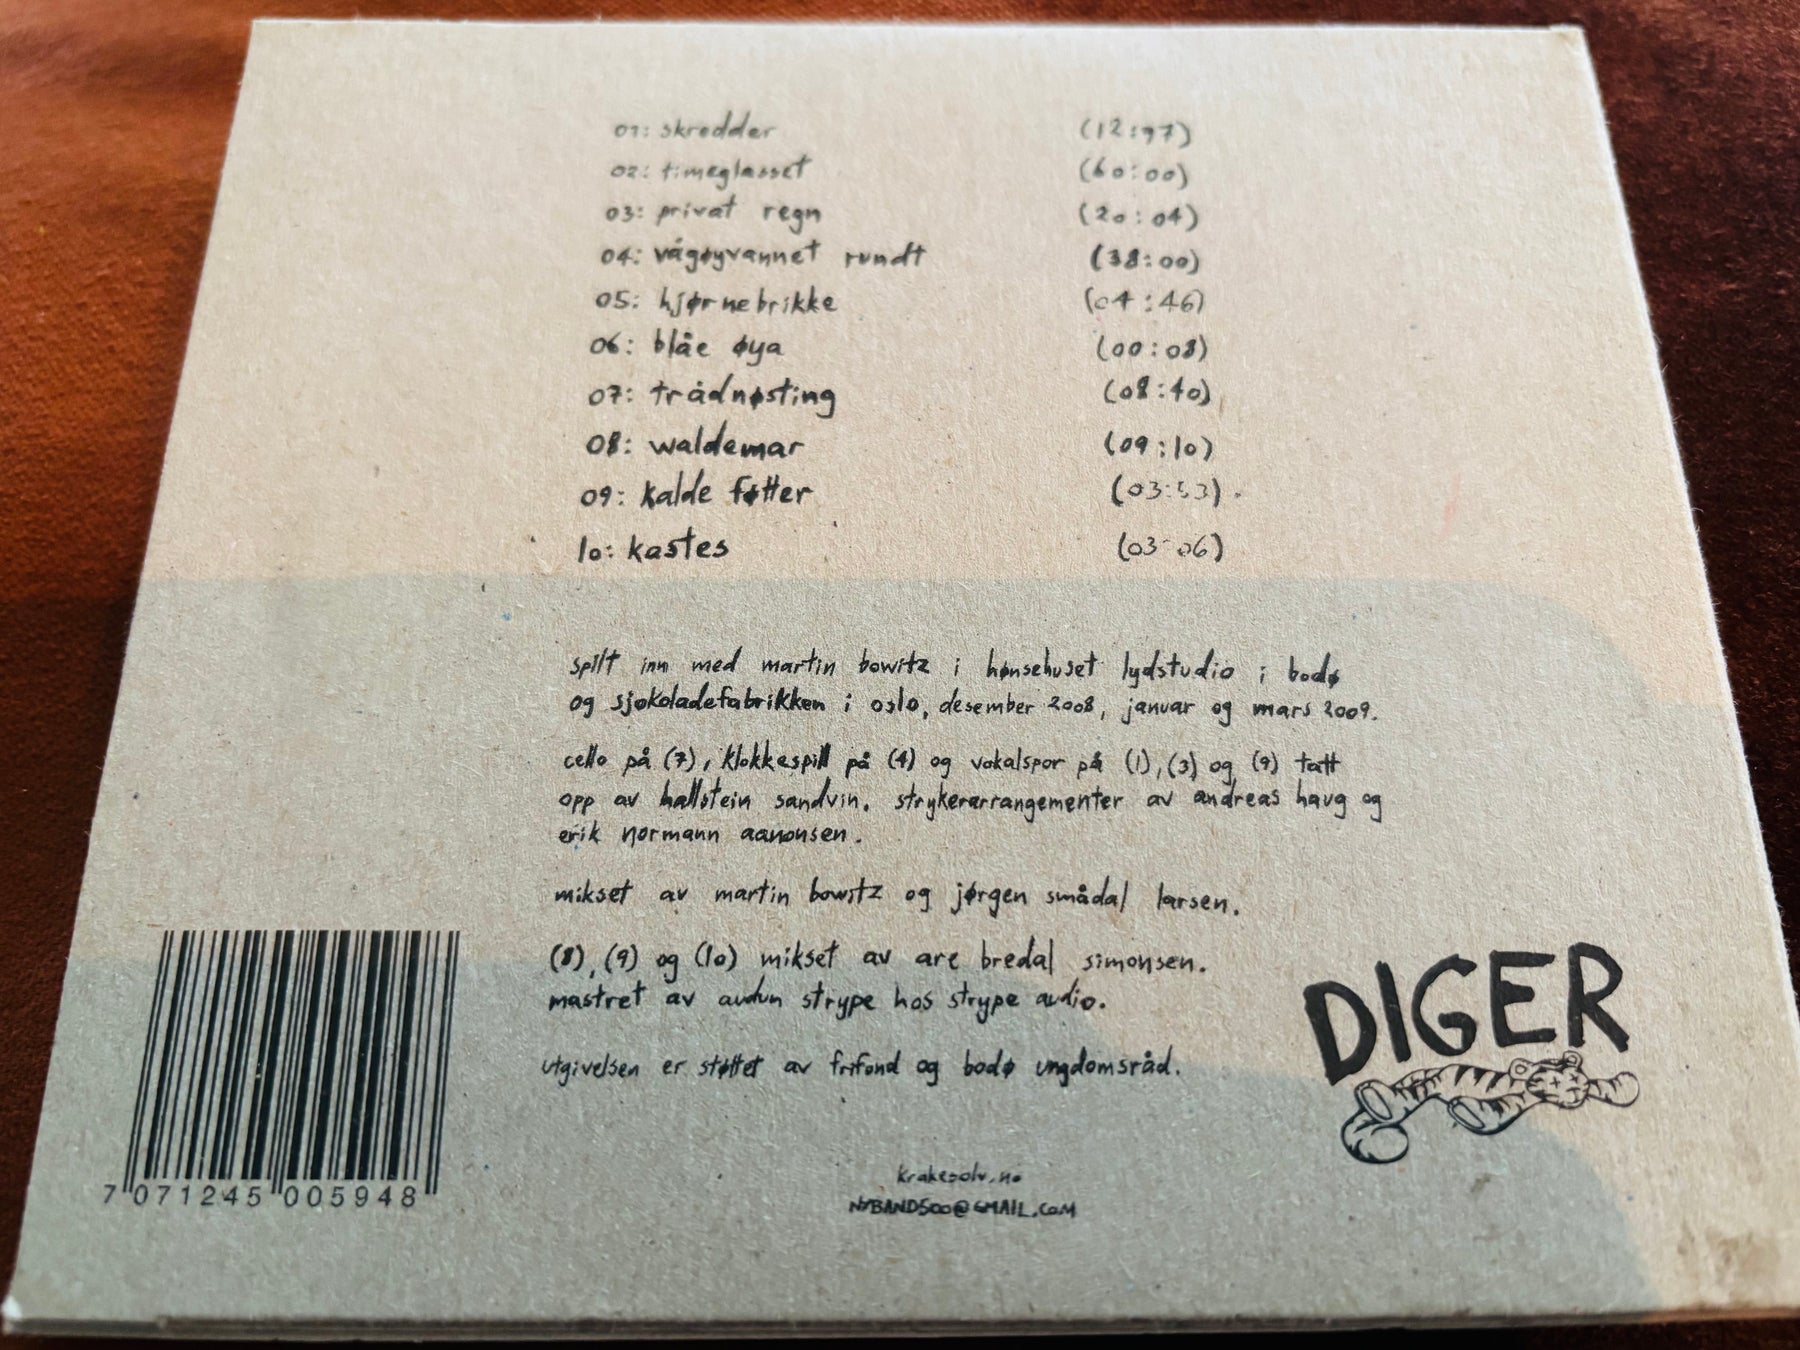 01: skredder (12:97)
02: timeglasset (60:00)
03: privat regn (20:04)
04: vågøyvannet rundt (38:00)
05: hjørnebrikke (04:46)
06: blåe øya (00:08)
07: trådnøsting (08:40)
08: waldemar (09:10)
09: kalde føtter (03:53).
10: kastes (03:06)
spilt inn med martin bowitz i hønsehuset lydstudio i bodø
og sjokoladefabrikken i oslo, desember 2008, januar og mars 2009.
cello på (7), klokkespill på (4) og vokalspor på (1), (3) og (9) tatt
opp av hallstein sandvin. strykerarrangementer av andreas haug og
erik normann aanonsen.
mikset av martin bowitz og jørgen smådal larsen.
(8), (9) og (10) mikset av are bredal simonsen.
mastret av audun strype hos strype audio.
utgivelsen er støttet av frifond og bodø ungdomsråd.
DIGER
krakesolv.no
NYBAND500@GMAIL.COM
7 071245 005948